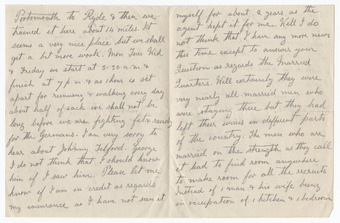 Portsmouth to Ryde & then we
trained it here about 14 miles. It
seems a very nice place but we shall
get a lot more work. From Tues Kid
& Friday we start at 5-30 a.m. &
finish at 7 p.m. & as there is set
apart for running & walking every day
about half of each we shall not be
long before we are fighting fit & ready
for the Germans. I am very sorry to
hear about Johnny Telford. George
I do not think that I should know
him if I saw him. Please let me
know if I am in credit as regards
my insurance as I have not seen it
myself for about 2 years as the
agent kept it for me. Well I do
not think that I have any more news
this time except to answer your
question as regards the married
quarters. Well certainly they were
very nearly all married men who
were staying there but they had
left their wives in different parts
of the country. The men who are
married on the strength as they call
it had to find room anywhere
to make room for all the recruits
Instead of 1 man & his wife being
in occupation of 1 kitchen & 1 bedroom